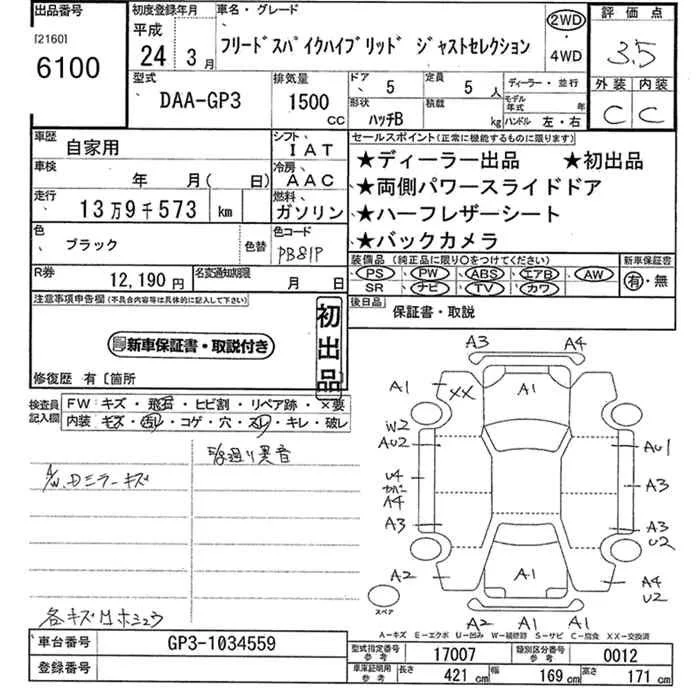 出品番号 初度登録年月 車名・グレード 2WD 評価点
[2160] 平成 フリードスパイクハイブリッド ジャストセレクション 3.5
6100 24年 3月 4WD
型式 排気量 ドア 5 定員 5人 ディーラー・並行 外装 内装
DAA-GP3 1500cc 形状 ハッチB 積載 kg モデル年式 年 ハンドル 左・右 C C
車歴 自家用 シフト IAT セールスポイント(正常に機能するものに限ります)
車検 年 月(日) 冷房 AAC ★ディーラー出品 ★初出品
走行 13万9千573 km 燃料 ガソリン ★両側パワースライドドア
★ハーフレザーシート
色 ブラック 色替 色コード PB81P ★バックカメラ
装備品(純正品に限り〇をつけてください) 新車保証書
PS PW ABS エアB AW 有・無
SR ナビ TV カワ
R券 12,190円 名変通知期限 月 日
後日品 保証書・取説
注意事項申告欄(不具合内容等は具体的に記入して下さい)
初出品
新車保証書・取説付き
修復歴 有〔箇所
検査員記入欄 FW キズ・飛石・ヒビ割・リペア跡・×要
内装 キズ・汚レ・コゲ・穴・スレ・キレ・破レ
異音
ミラーキズ
A3 A4
A1 XX A1
W2
AU2 AU1
U4
A4 A3
A3 A3
U2
A2 A1 A4
U2
スペア A2 A1 A1
A-キズ E-エクボ U-凹み W-補修跡 S-サビ C-腐食 XX-交換済
車台番号 GP3-1034559 型式指定番号 参考 17007 類別区分番号 参考 0012
登録番号 車庫証明用 参考 長さ 421cm 幅 169cm 高さ 171cm